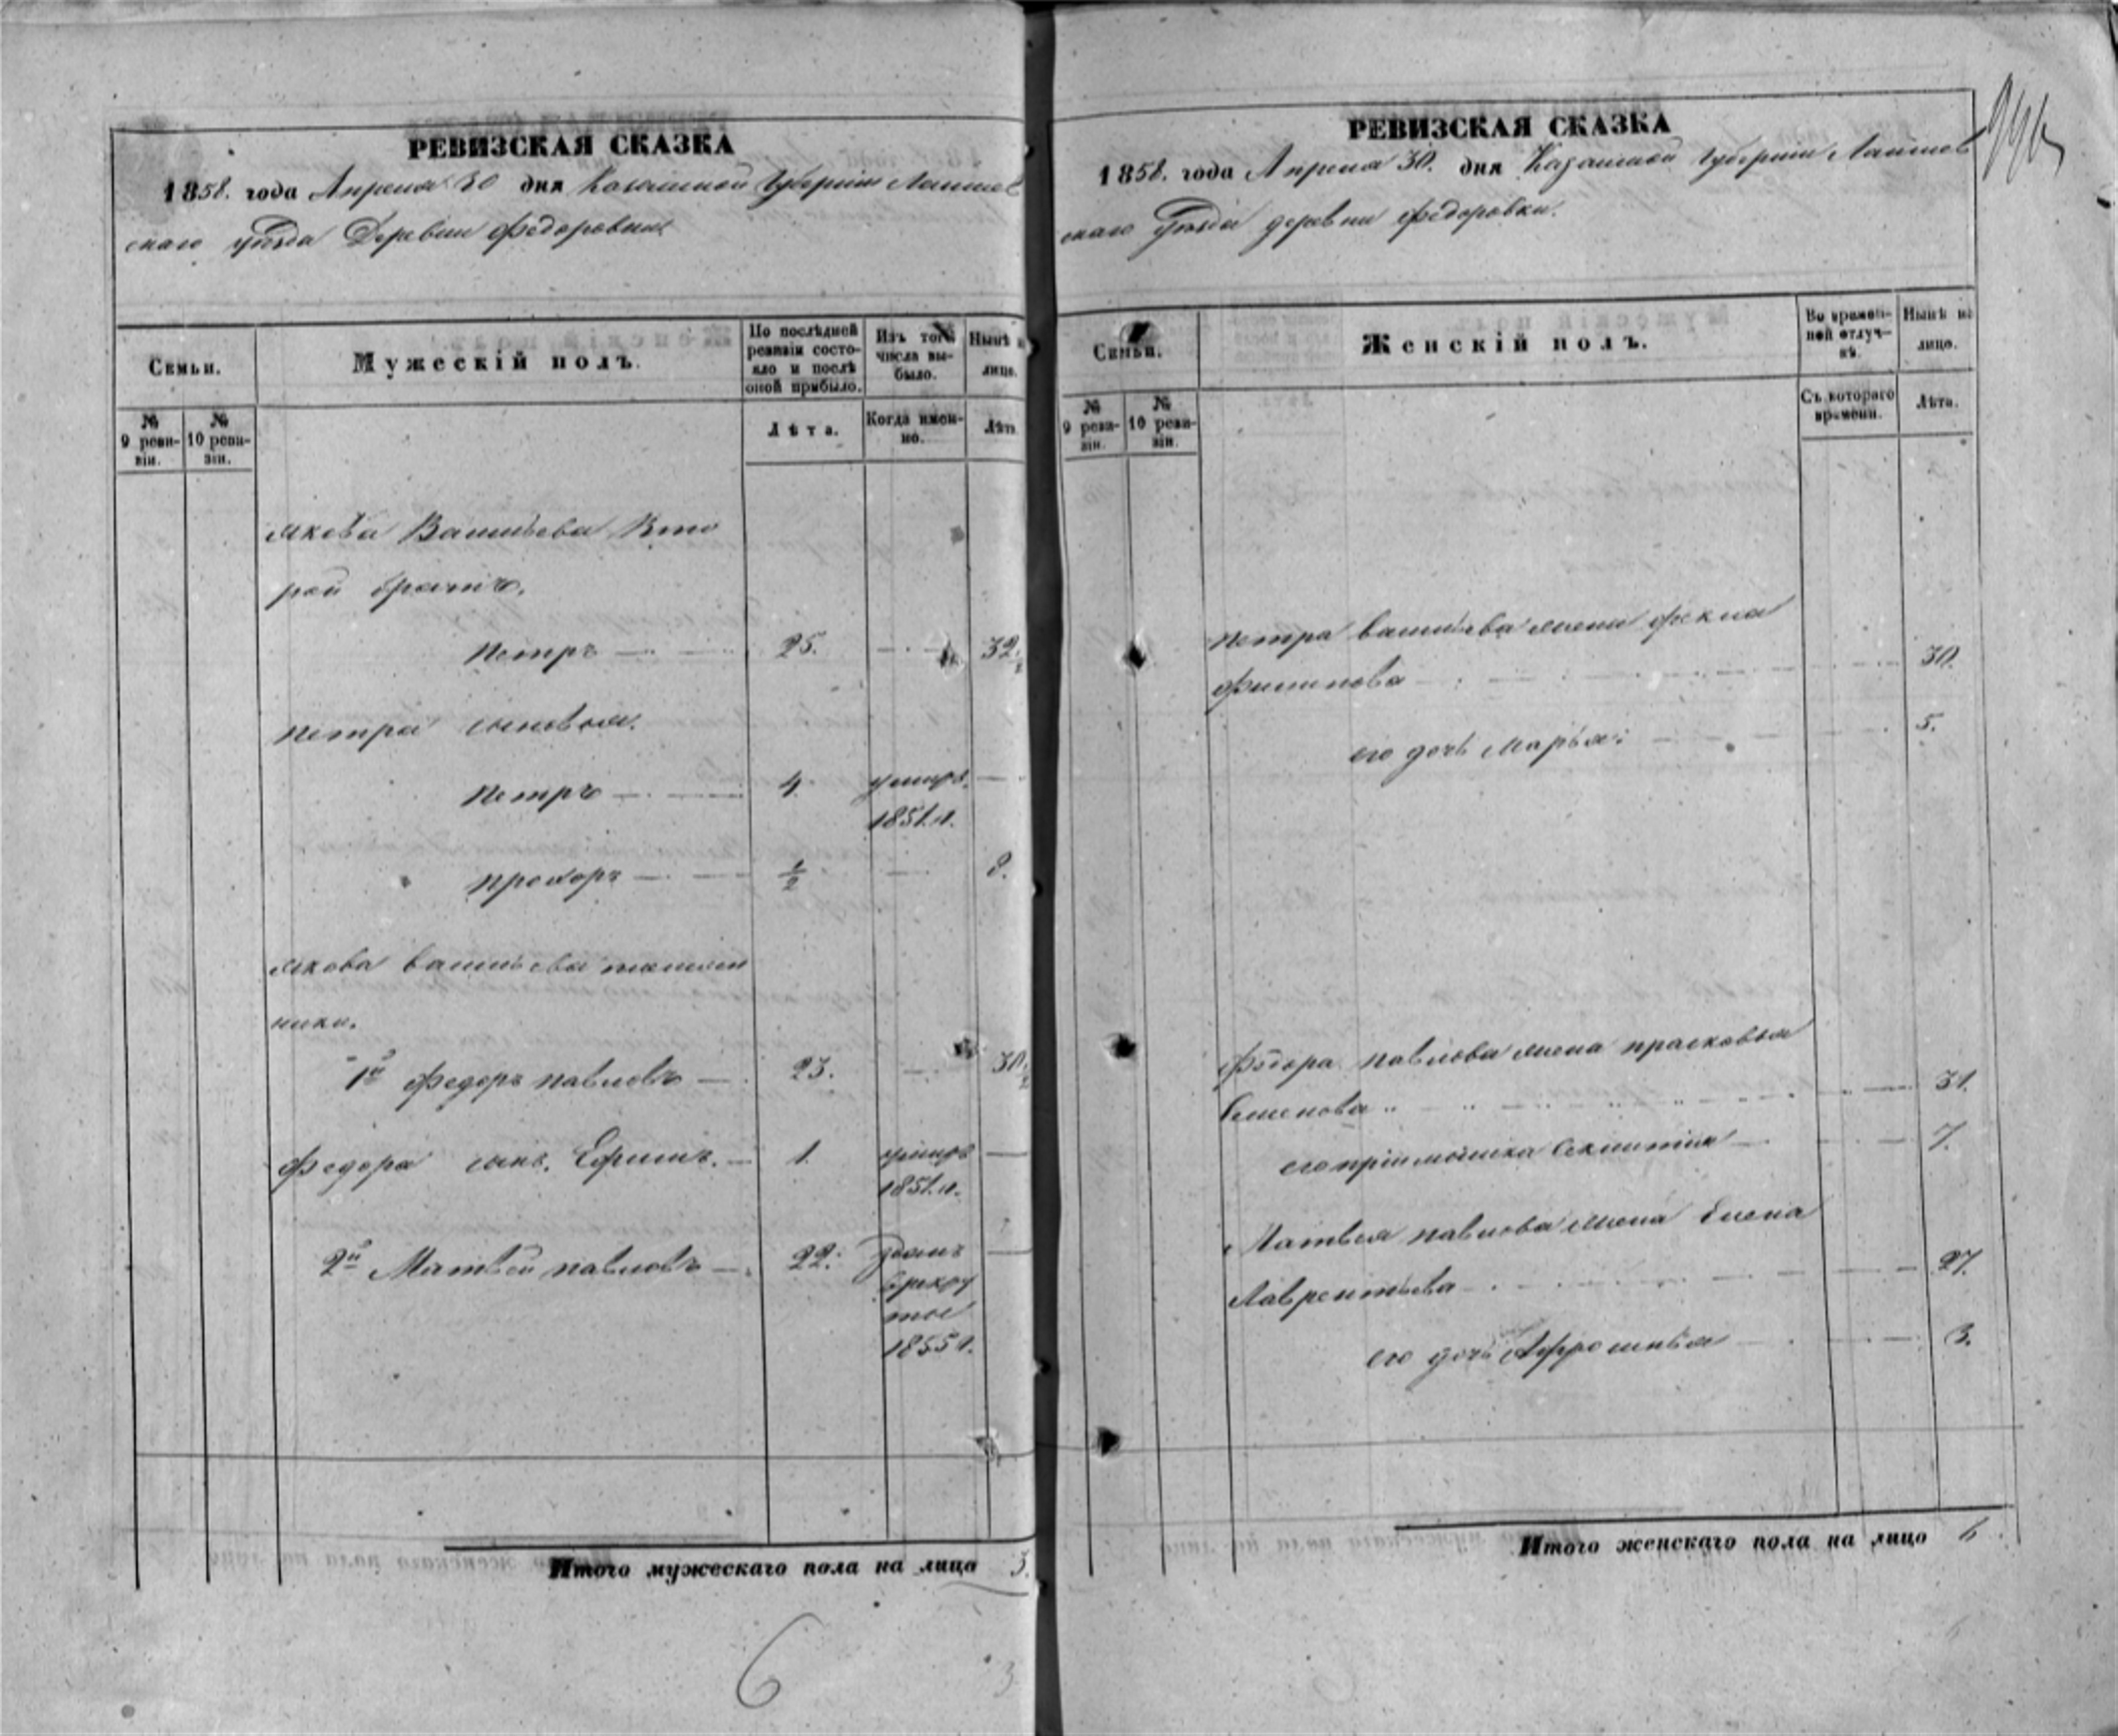 РЕВИЗСКАЯ СКАЗКА
1858. года Апреля 30 дня Казанской Губернiи Лаишев
скаго уѣзда Деревни Федоровки
Семьи.
Мужескiй полъ.
По послѣдней ревизiи состояло и послѣ оной прибыло.
Изъ того числа выбыло.
Нынѣ на лицо.
№ 9 ревизiи.
№ 10 ревизiи.
Лѣта.
Когда именно.
Лѣта
якова Васильева Вто
рой братъ.
петръ 25. 32.
петра сыновья.
петръ 4. умеръ
1851.г.
прохоръ 1/2 8.
якова васильева племян
ники.
1й федоръ павловъ 23. 30.
федора сынъ. Ефимъ. 1. умеръ
1851.г.
2й Матвей павловъ 22. Зданъ
врекру
ты
1855 г.
Итого мужескаго пола на лицо 3.
6
3
РЕВИЗСКАЯ СКАЗКА
1858. года Апреля 30. дня Казанской Губернiи Лаишев
скаго Уѣзда деревни федоровки.
Семьи.
Женскiй полъ.
Во временной отлучкѣ.
Нынѣ на лицо.
№ 9 ревизiи.
№ 10 ревизiи.
Съ котораго времени.
Лѣта.
петра васильева жена фекла
филипова 30.
его дочь марья. 5.
федора павлова жена прасковья
Семенова 31.
его прiимышка 7.
Матвея павлова жена Елена
Лаврентьева 27.
его дочь Афросинья 3.
Итого женскаго пола на лицо 6